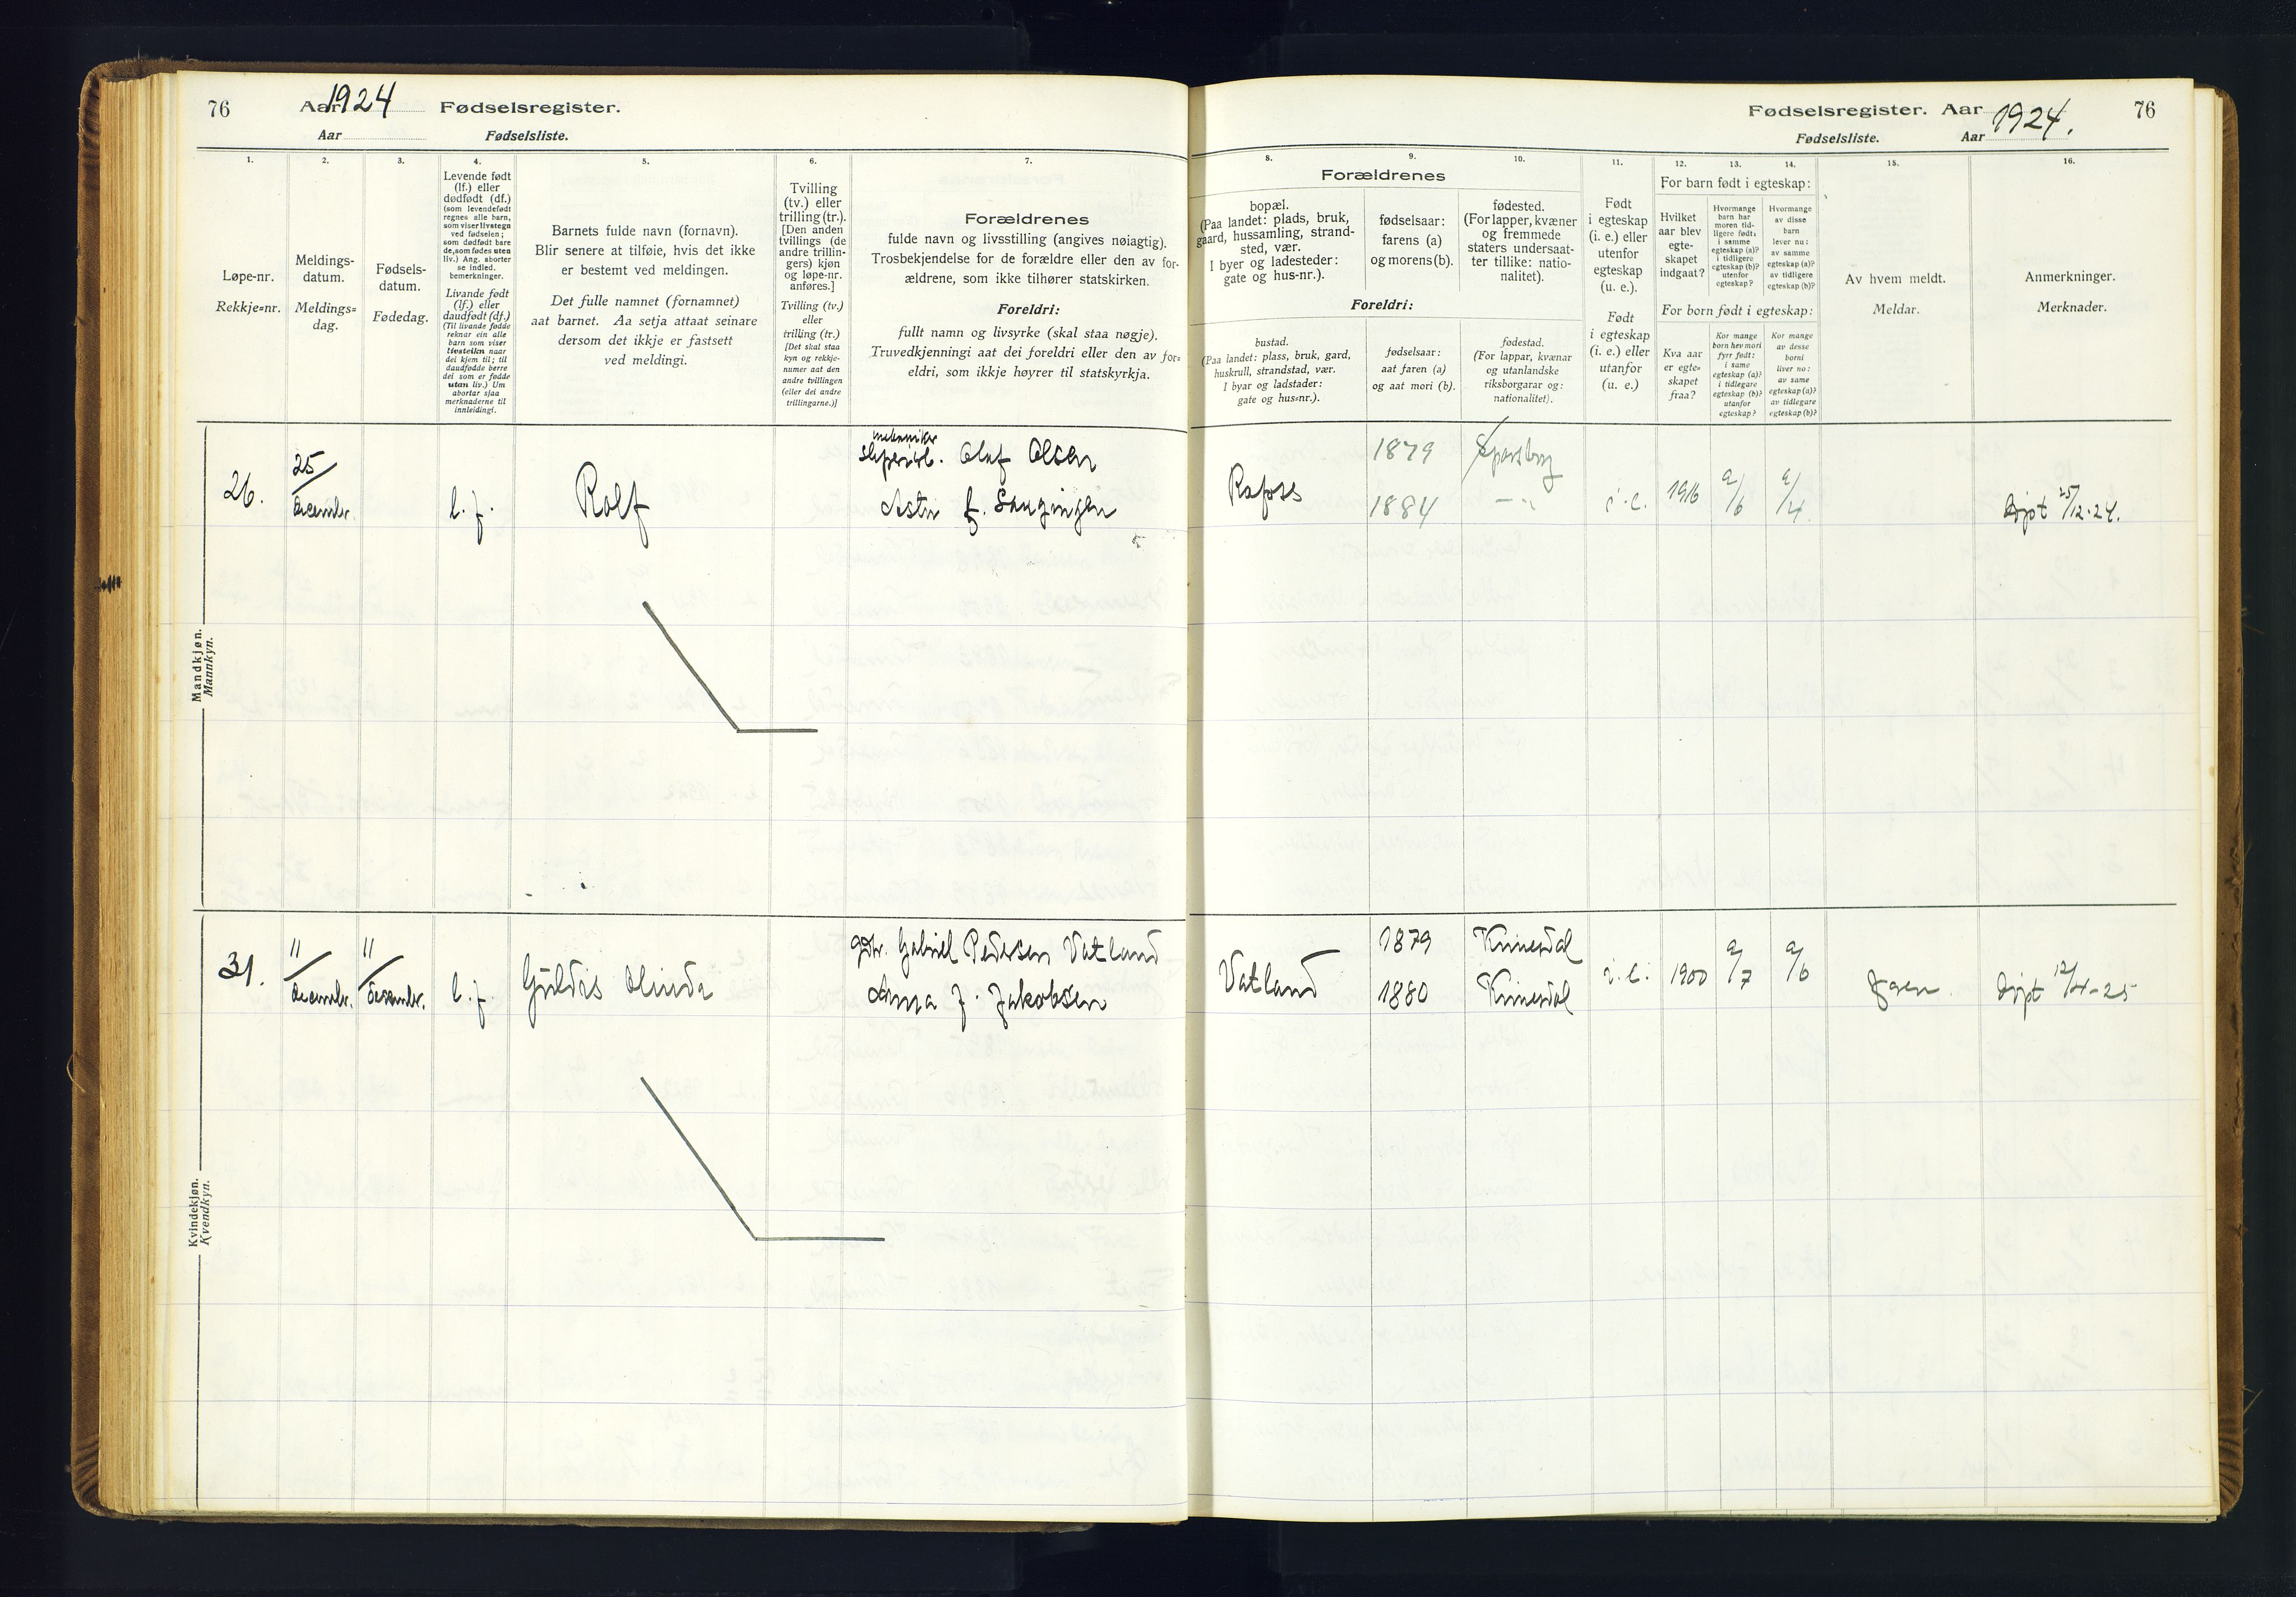 76
Aar 1924
Fødselsregister.
Aar
Fødselsliste.
1.
2.
3.
4.
5.
6.
7.
Løpe-nr.
Rekkje=nr.
Meldings-
datum.
Meldings=
dag.
Fødsels-
datum.
Fødedag.
Levende født
(lf.) eller
dødfødt (df.)
(som levendefødt
regnes alle barn,
som viser livstegn
ved fødselen;
som dødfødt bare
de, som fødes uten
liv.) Ang. aborter
se indled.
bemerkninger.
Livande født
(lf.) eller
daudfødt (df.)
(Til livande fødde
reknar ein alle
barn som viser
livsteikn naar
dei kjem til; til
daudfødde berre
dei som er fødde
utan liv.) Um
abortar sjaa
merknaderne til
innleidingi.
Barnets fulde navn (fornavn).
Blir senere at tilføie, hvis det ikke
er bestemt ved meldingen.
Det fulle namnet (fornamnet)
aat barnet. Aa setja attaat seinare
dersom det ikkje er fastsett
ved meldingi.
Tvilling
(tv.) eller
trilling (tr.).
[Den anden
tvillings (de
andre trillin-
gers) kjøn
og løpe-nr.
anføres.]
Tvilling (tv.)
eller
trilling (tr.)
[Det skal staa
kyn og rekkje-
numer aat den
andre tvillingen
(eller dei andre
trillingarne.)]
Forældrenes
fulde navn og livsstilling (angives nøiagtig).
Trosbekjendelse for de forældre eller den av for-
ældrene, som ikke tilhører statskirken.
Foreldri:
fullt namn og livsyrke (skal staa nøgje).
Truvedkjenningi aat dei foreldri eller den av for=
eldri, som ikkje høyrer til statskyrkja.
Mandkjøn.
Mannkyn.
26.
25/
december.
l. f.
Rolf
Olaf Olsen
Kvindekjøn.
Kvendkyn.
31.
11/
december.
11/
december.
l. f.
Guldis Olinda
gbr. Gabriel Pedersen Vatland
Anna J. Jakobsen
Fødselsregister. Aar 1924.
76
Fødselsliste.
Aar
8.
9.
10.
11.
12.
13.
14.
15.
16.
Forældrenes
bopæl.
(Paa landet: plads, bruk,
gaard, hussamling, strand-
sted, vær.
I byer og ladesteder:
gate og hus-nr.).
fødselsaar:
farens (a)
og morens (b).
fødested.
(For lapper, kvæner
og fremmede
staters undersaat-
ter tillike: natio-
nalitet).
Foreldri:
bustad.
(Paa landet: plass, bruk, gard,
huskrull, strandstad, vær.
I byar og ladstader:
gate og hus=nr.).
fødselsaar:
aat faren (a)
og aat mori (b).
fødestad.
(For lappar, kvænar
og utanlandske
riksborgarar og:
nationalitet).
Født
i egteskap
(i. e.) eller
utenfor
egteskap
(u. e.).
Født
i egteskap
(i. e.) eller
utanfor
(u. e.)
For barn født i egteskap:
Hvilket
aar blev
egte-
skapet
indgaat?
Hvormange
barn har
moren tid-
ligere født:
i samme
egteskap (a)?
i tidligere
egteskap (b)?
utenfor
egteskap?
Hvormange
av disse
barn
lever nu:
av samme
egteskap (a)?
av tidligere
egteskap (b)?
For born født i egteskap:
Kva aar
er egte=
skapet
fraa?
Kor mange
born hev mori
fyrr født:
i same
egteskap (a)?
i tidlegare
egteskap (b)?
utanfor
egteskap?
Kor mange
av desse
borni
liver no:
av same
egteskap (a)?
av tidlegare
egteskap (b)?
Av hvem meldt.
Meldar.
Anmerkninger.
Merknader.
Rafoss
1879
1884
i. e.
1916
a/6
a/4
døpt 25/12-24.
Vatland
1879
1880
Kvinesdal
Kvinesdal
i. e.
1900
a/7
a/6
faren
døpt 12/4-25